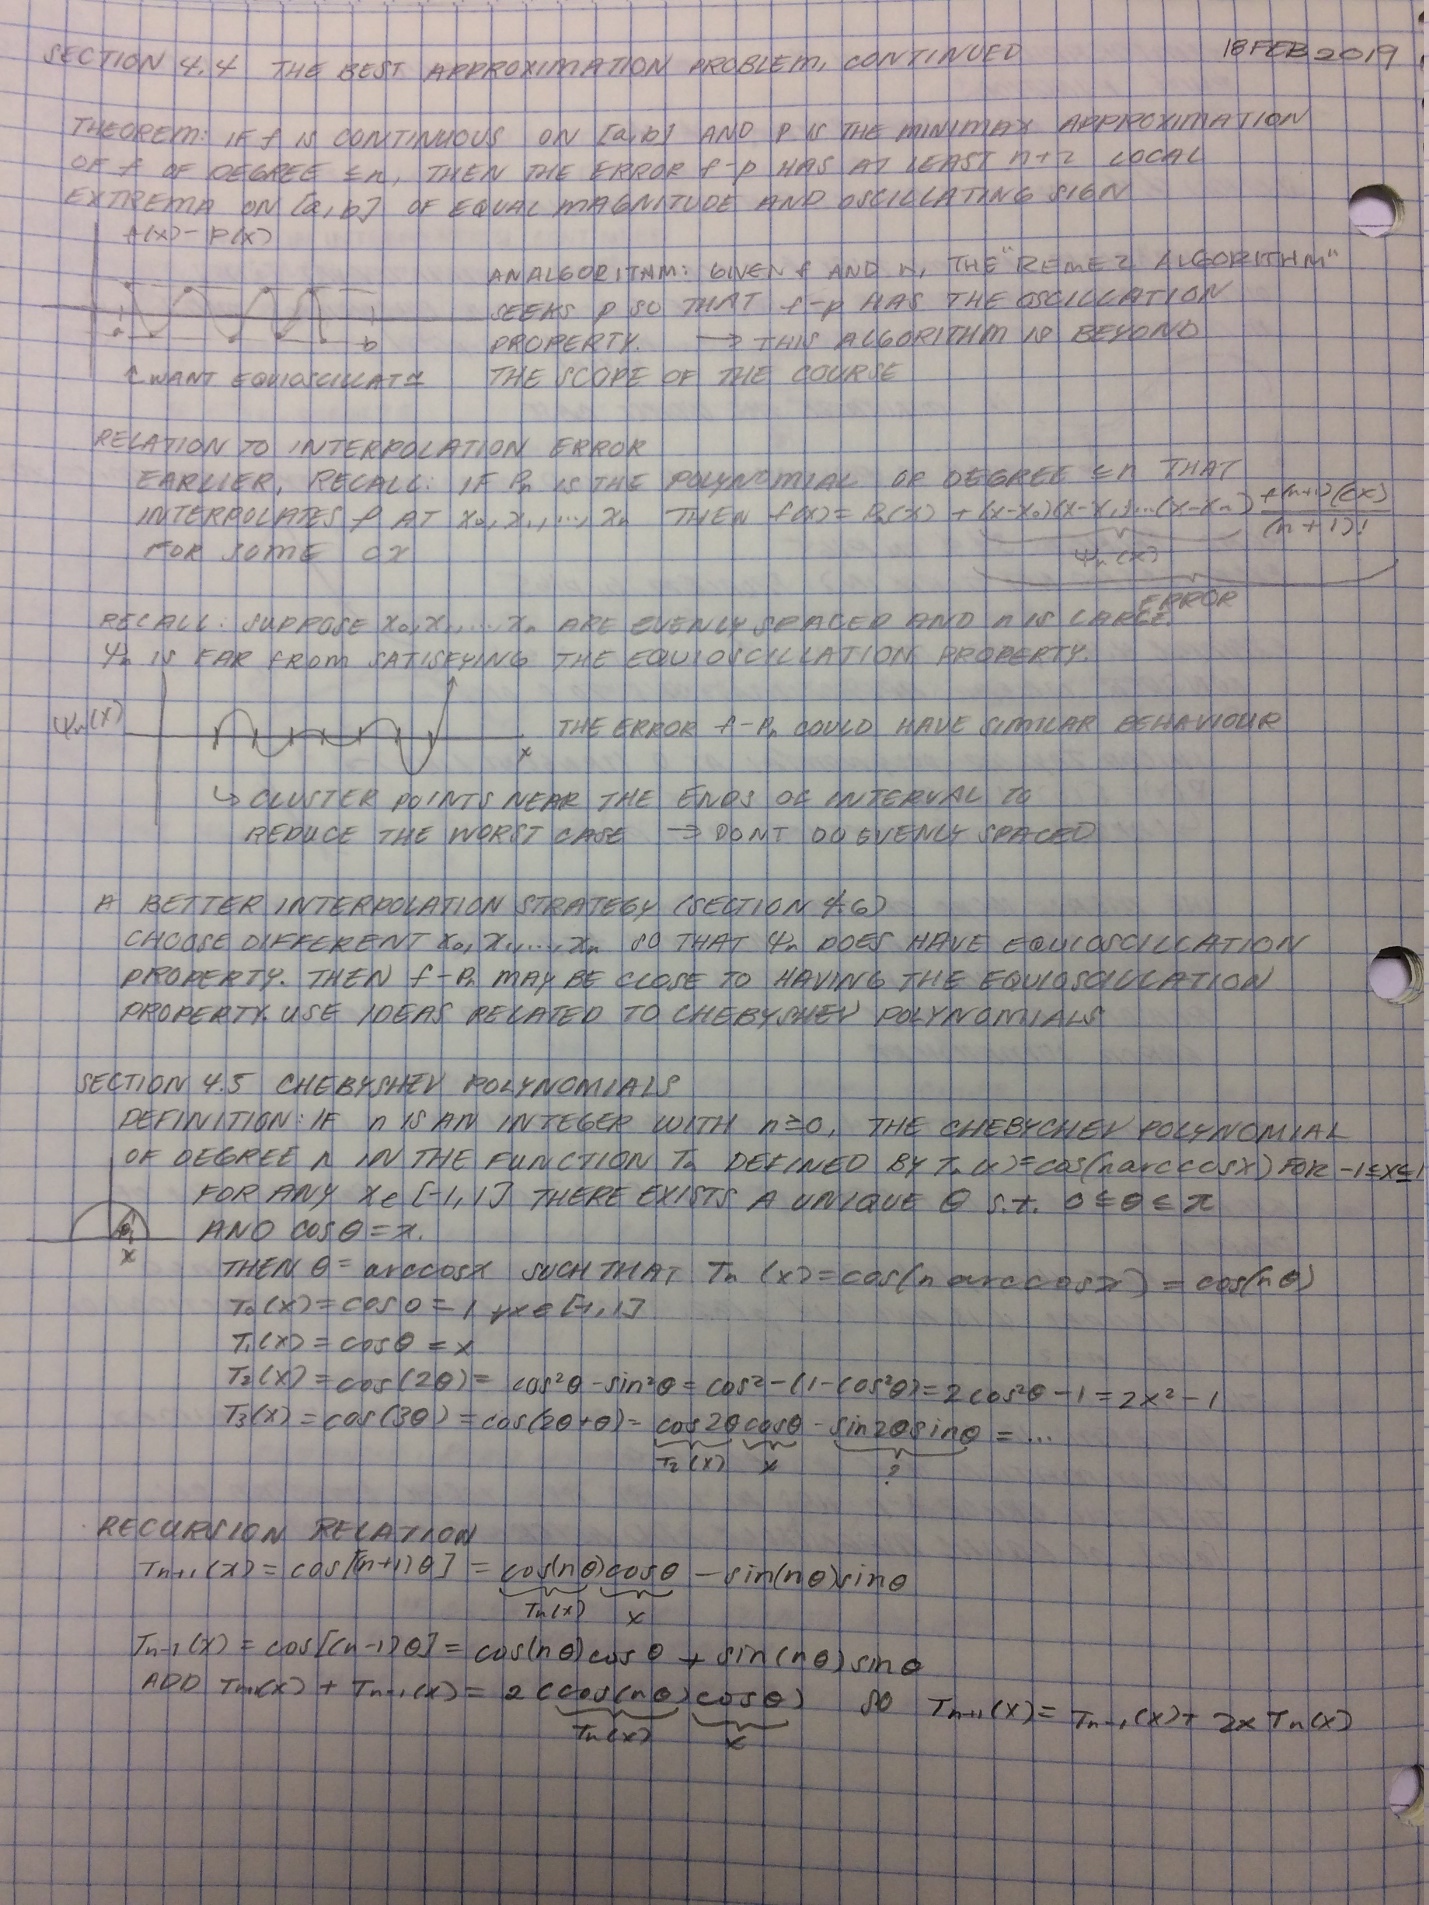 SECTION 4.4 THE BEST APPROXIMATION PROBLEM, CONTINUED 18 FEB 2019
THEOREM: IF f IS CONTINUOUS ON [a,b] AND P IS THE MINIMAX APPROXIMATION
OF f OF DEGREE ≤n, THEN THE ERROR f-p HAS AT LEAST n+2 LOCAL
EXTREMA ON [a,b] OF EQUAL MAGNITUDE AND OSCILLATING SIGN
f(x)-P(x)
a b
↑ WANT EQUIOSCILLAT
AN ALGORITHM: GIVEN f AND n, THE "REMEZ ALGORITHM"
SEEKS p SO THAT f-p HAS THE OSCILLATION
PROPERTY. → THIS ALGORITHM IS BEYOND
THE SCOPE OF THE COURSE
RELATION TO INTERPOLATION ERROR
EARLIER, RECALL: IF Pn IS THE POLYNOMIAL OF DEGREE ≤n THAT
INTERPOLATES f AT x₀,x₁,...,xn THEN f(x)=Pn(x)+(x-x₀)(x-x₁)...(x-xn) f^(n+1)(cx)/(n+1)!
FOR SOME cx
Ψn(x)
ERROR
RECALL: SUPPOSE x₀,x₁,...,xn ARE EVENLY SPACED AND n IS LARGE.
Ψn IS FAR FROM SATISFYING THE EQUIOSCILLATION PROPERTY.
Ψn(x)
x
THE ERROR f-Pn COULD HAVE SIMILAR BEHAVIOUR
↳ CLUSTER POINTS NEAR THE ENDS OF INTERVAL TO
REDUCE THE WORST CASE → DONT DO EVENLY SPACED
A BETTER INTERPOLATION STRATEGY (SECTION 4.6)
CHOOSE DIFFERENT x₀,x₁,...,xn SO THAT Ψn DOES HAVE EQUIOSCILLATION
PROPERTY. THEN f-Pn MAY BE CLOSE TO HAVING THE EQUIOSCILLATION
PROPERTY. USE IDEAS RELATED TO CHEBYSHEV POLYNOMIALS
SECTION 4.5 CHEBYSHEV POLYNOMIALS
DEFINITION: IF n IS AN INTEGER WITH n≥0, THE CHEBYCHEV POLYNOMIAL
OF DEGREE n IN THE FUNCTION Tn DEFINED BY Tn(x)=cos(narccosx) FOR -1≤x≤1
FOR ANY x∈[-1,1] THERE EXISTS A UNIQUE θ s.t. 0≤θ≤π
AND cosθ=x.
θ
x
THEN θ=arccosx SUCH THAT Tn(x)=cos(n arccosx)=cos(nθ)
T₀(x)=cos0=1 ∀x∈[-1,1]
T₁(x)=cosθ=x
T₂(x)=cos(2θ)=cos²θ-sin²θ=cos²-(1-cos²θ)=2cos²θ-1=2x²-1
T₃(x)=cos(3θ)=cos(2θ+θ)=cos2θcosθ-sin2θsinθ=...
T₂(x) x ?
RECURSION RELATION
Tn+1(x)=cos[(n+1)θ]=cos(nθ)cosθ-sin(nθ)sinθ
Tn(x) x
Tn-1(x)=cos[(n-1)θ]=cos(nθ)cosθ+sin(nθ)sinθ
ADD Tn+1(x)+Tn-1(x)=2(cos(nθ)cosθ) SO Tn+1(x)=Tn-1(x)+2xTn(x)
Tn(x) x